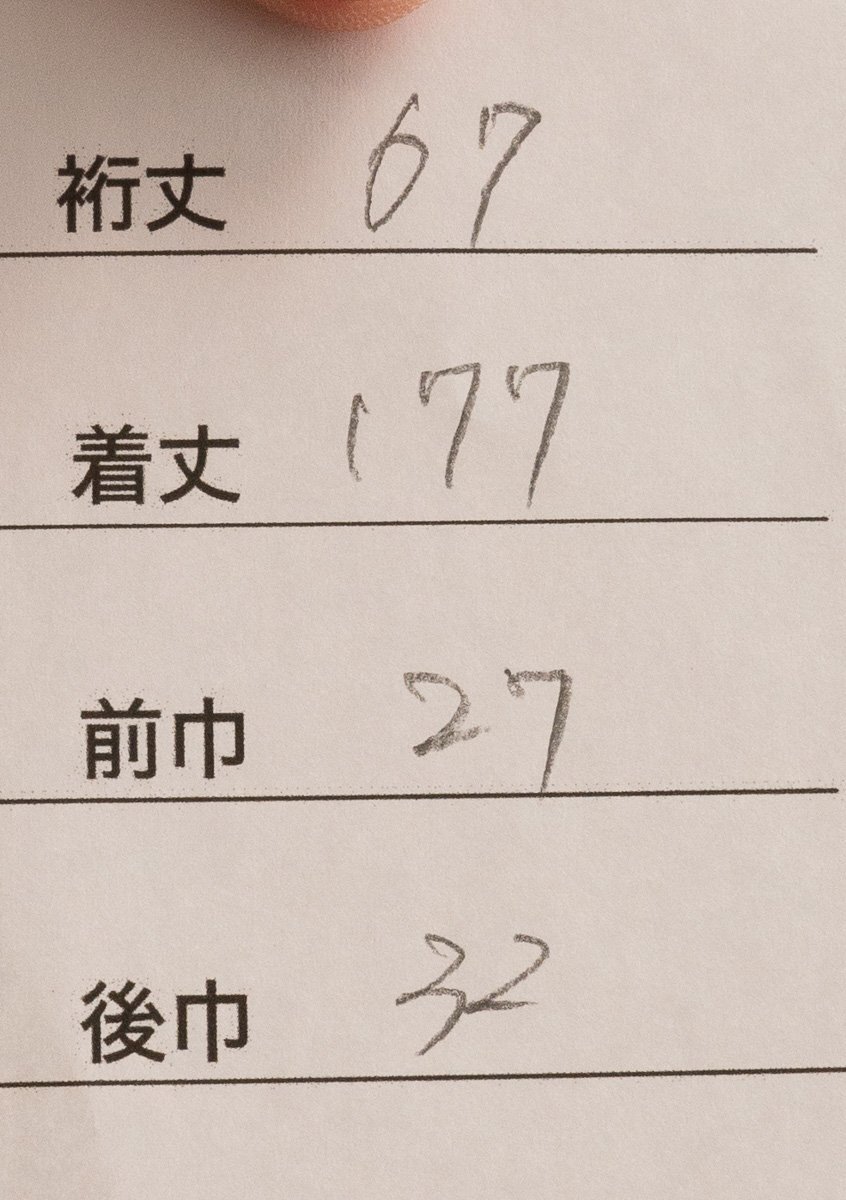 裄丈 67
着丈 177
前巾 27
後巾 32